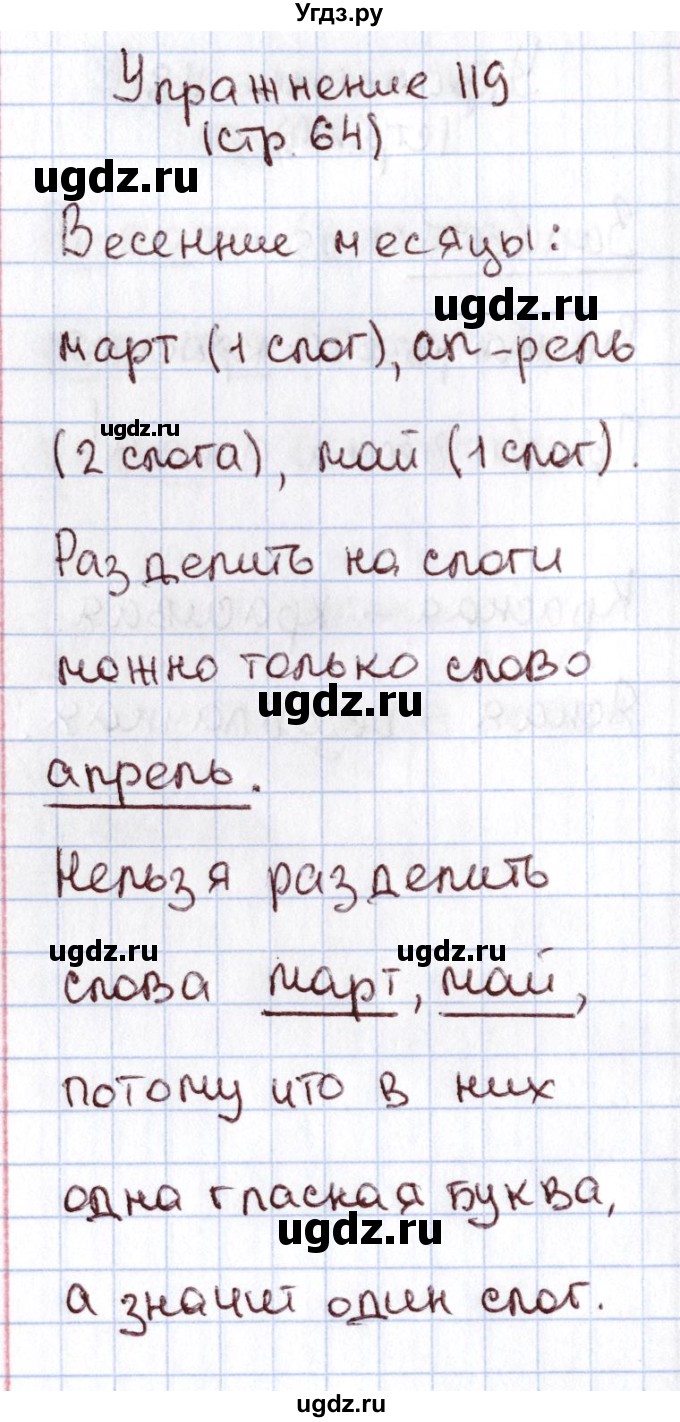 Угдз.ру
Упражнение 119
(стр. 64)
ugdz.ru
Весенние месяцы:
ugdz.ru
март (1 слог), ап-рель
ugdz.ru
(2 слога), май (1 слог).
Разделить на слоги
можно только слово
ugdz.ru
апрель.
Нельзя разделить
ugdz.ru ugdz.ru
слова март, май,
потому что в них
одна гласная буква,
ugdz.ru
а значит один слог.
ugdz.ru